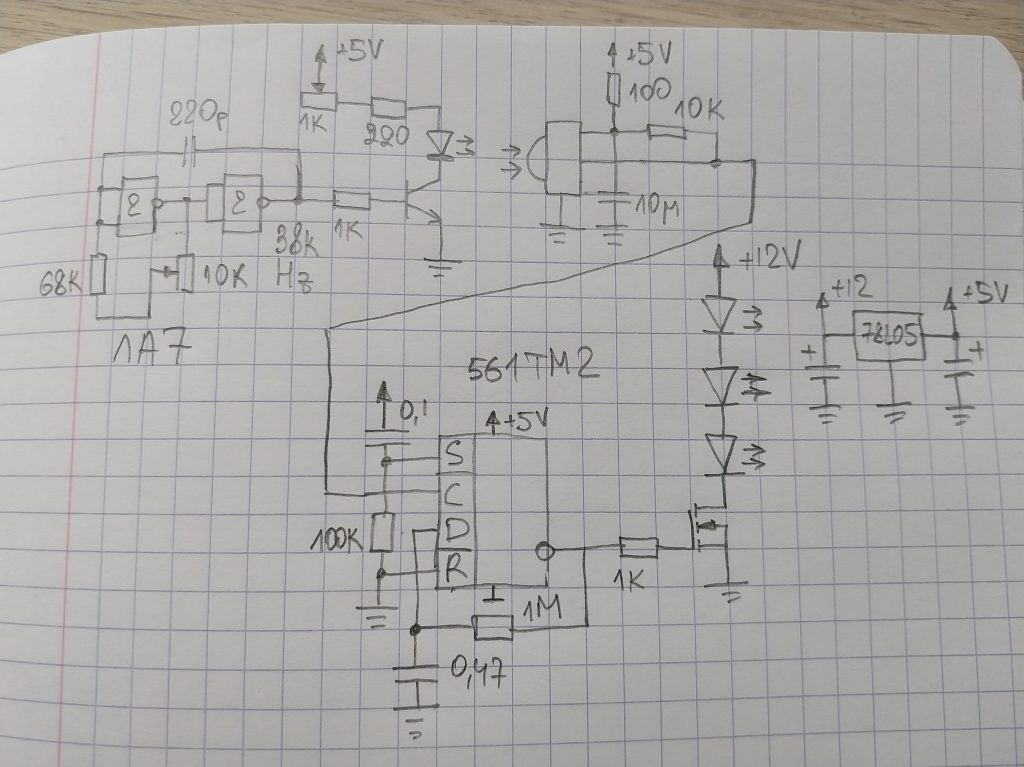 +5V
1K
220
220p
2
2
1K
38k
Hz
68K
10K
1A7
+5V
100
10K
10μ
+12V
+12
78L05
+5V
+
+
561TM2
0,1
+5V
S
C
D
R
100K
1M
1K
0,47